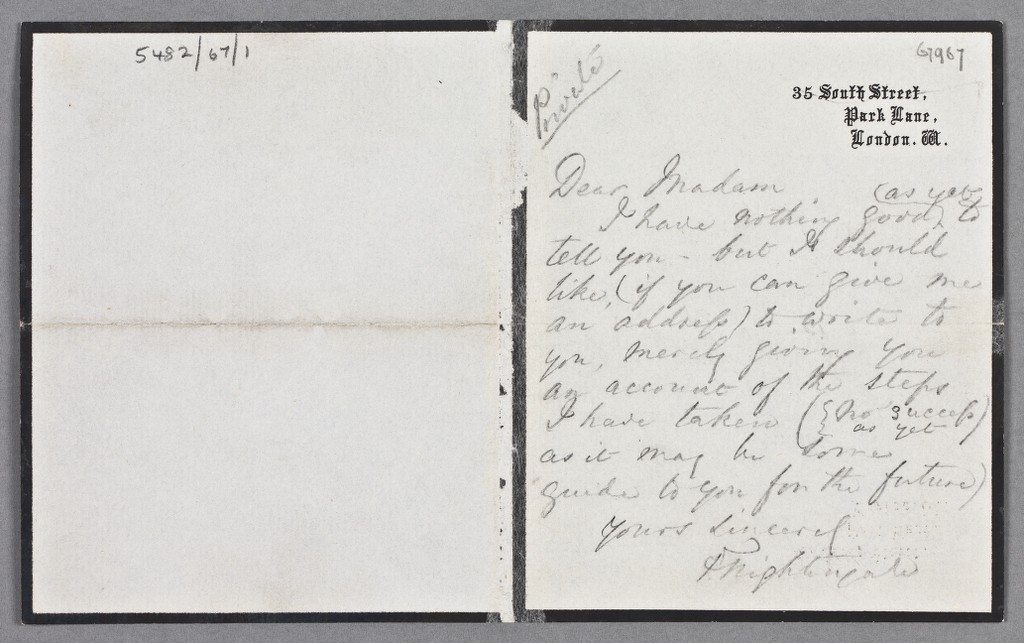 5482/67/1
G7967
Private
35 South Street,
Park Lane,
London. W.
Dear Madam
(as yet)
I have nothing good to
tell you - but I should
like, (if you can give me
an address) to write to
you, merely giving you
an account of the steps
I have taken ({no success
as yet)
as it may be some
guide to you for the future)
Yours sincerely
F Nightingale